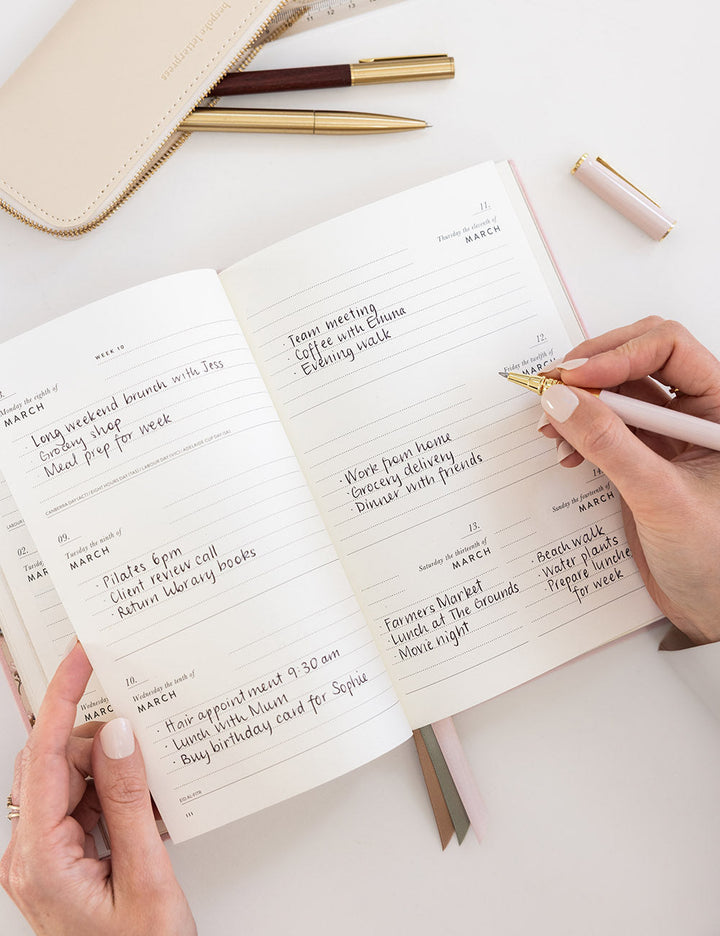 bespoke letterpress
WEEK 10
Monday the eighth of
MARCH
· Long weekend brunch with Jess
· Grocery shop
· Meal prep for week
CANBERRA DAY (ACT) / EIGHT HOURS DAY (TAS) / LABOUR DAY (VIC) / ADELAIDE CUP DAY (SA)
09.
Tuesday the ninth of
MARCH
· Pilates 6pm
· Client review call
· Return library books
10.
Wednesday the tenth of
MARCH
· Hair appointment 9:30am
· Lunch with Mum
· Buy birthday card for Sophie
111
11.
Thursday the eleventh of
MARCH
· Team meeting
· Coffee with Emma
· Evening walk
12.
Friday the twelfth of
MARCH
· Work from home
· Grocery delivery
· Dinner with friends
13.
Saturday the thirteenth of
MARCH
· Farmers Market
· Lunch at The Grounds
· Movie night
14.
Sunday the fourteenth of
MARCH
· Beach walk
· Water plants
· Prepare lunches
for week
02.